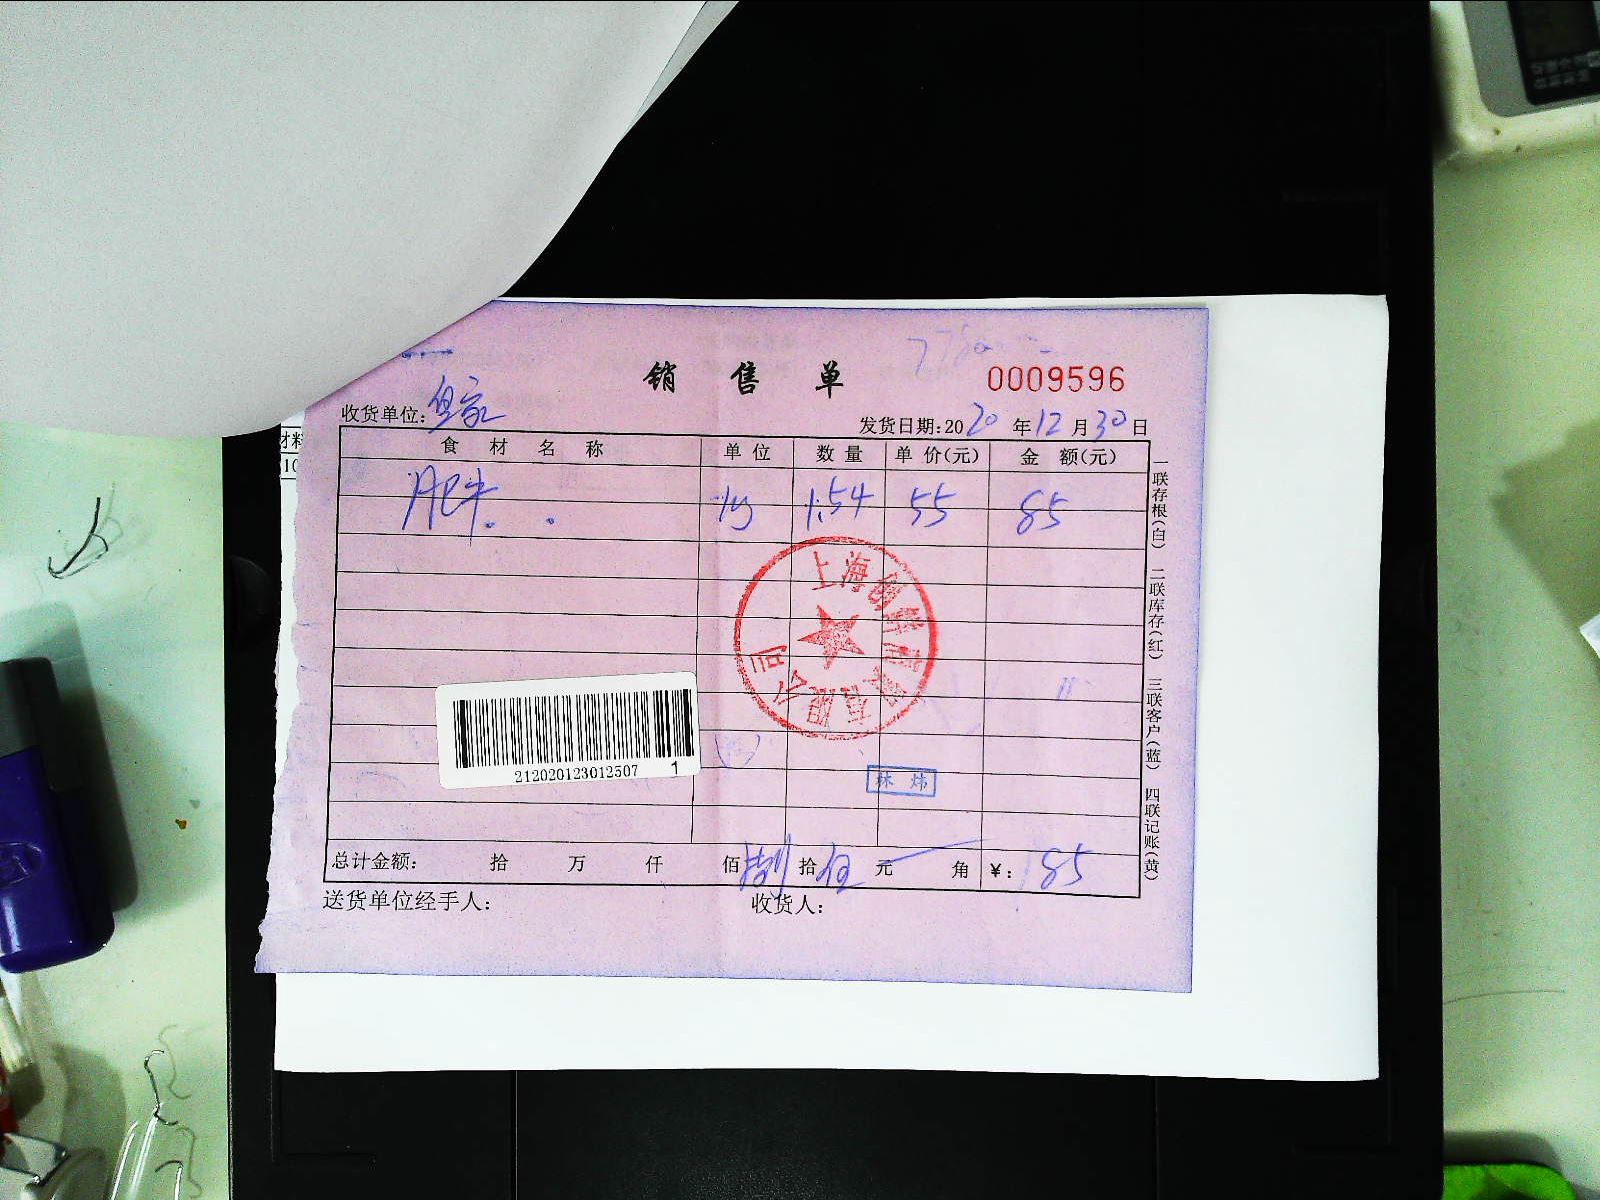 销售单
0009596
收货单位:鱼家
发货日期:2020年12月30日
材料
食材名称 单位 数量 单价(元) 金额(元)
肥牛 kg 1.54 55 85
上海 有限公司
212020123012507 1
林炜
总计金额: 拾 万 仟 佰 捌 拾 伍 元 角 ¥: 85
送货单位经手人: 收货人:
一联存根(白) 二联库存(红) 三联客户(蓝) 四联记账(黄)